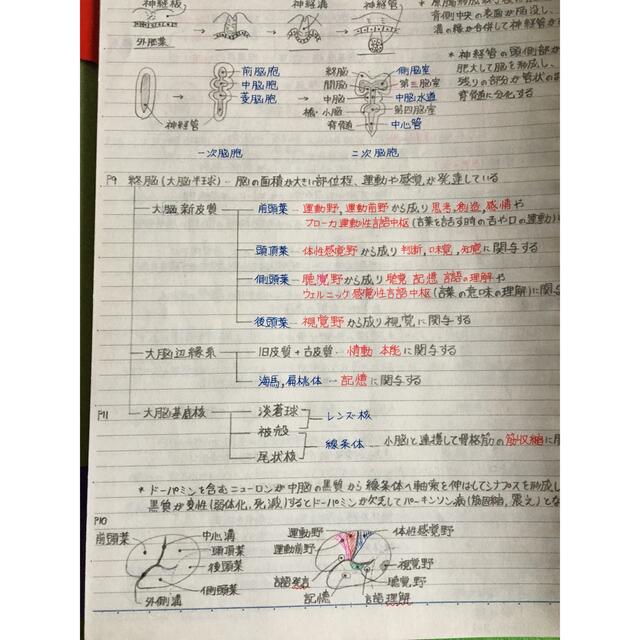 神経板
神経溝
神経管
外胚葉
背側中央の表面が陥没し、
溝の縁が合併して神経管が
前脳胞
中脳胞
菱脳胞
神経管
一次脳胞
終脳
間脳
中脳
橋・小脳
脊髄
側脳室
第三脳室
中脳水道
第四脳室
中心管
二次脳胞
* 神経管の頭側部が
肥大して脳を形成し、
残りの部分が管状の
脊髄に分化する
P9 終脳(大脳半球)―脳の面積が大きい部位程、運動や感覚が発達している
大脳新皮質
前頭葉―運動野,運動前野から成り思考,創造,感情や
ブローカ運動性言語中枢(言葉を話す時の舌や口の運動)に
頭頂葉―体性感覚野から成り判断,味覚,知覚に関与する
側頭葉―聴覚野から成り聴覚 記憶 言語の理解や
ウェルニッケ感覚性言語中枢(言葉の意味の理解)に関
後頭葉―視覚野から成り視覚に関与する
大脳辺縁系
旧皮質+古皮質―情動 本能に関与する
海馬,扁桃体―記憶に関与する
P11 大脳基底核
淡蒼球
被殻
尾状核
レンズ核
線条体―小脳と連携して骨格筋の筋収縮に
* ドーパミンを含むニューロンが中脳の黒質から線条体へ軸索を伸ばしてシナプスを形成し
黒質が変性(弱体化,死滅)するとドーパミンが欠乏してパーキンソン病(筋固縮,震え)とな
P10
前頭葉
中心溝
頭頂葉
後頭葉
側頭葉
外側溝
運動野
運動前野
言語発言
記憶
体性感覚野
視覚野
聴覚野
言語理解